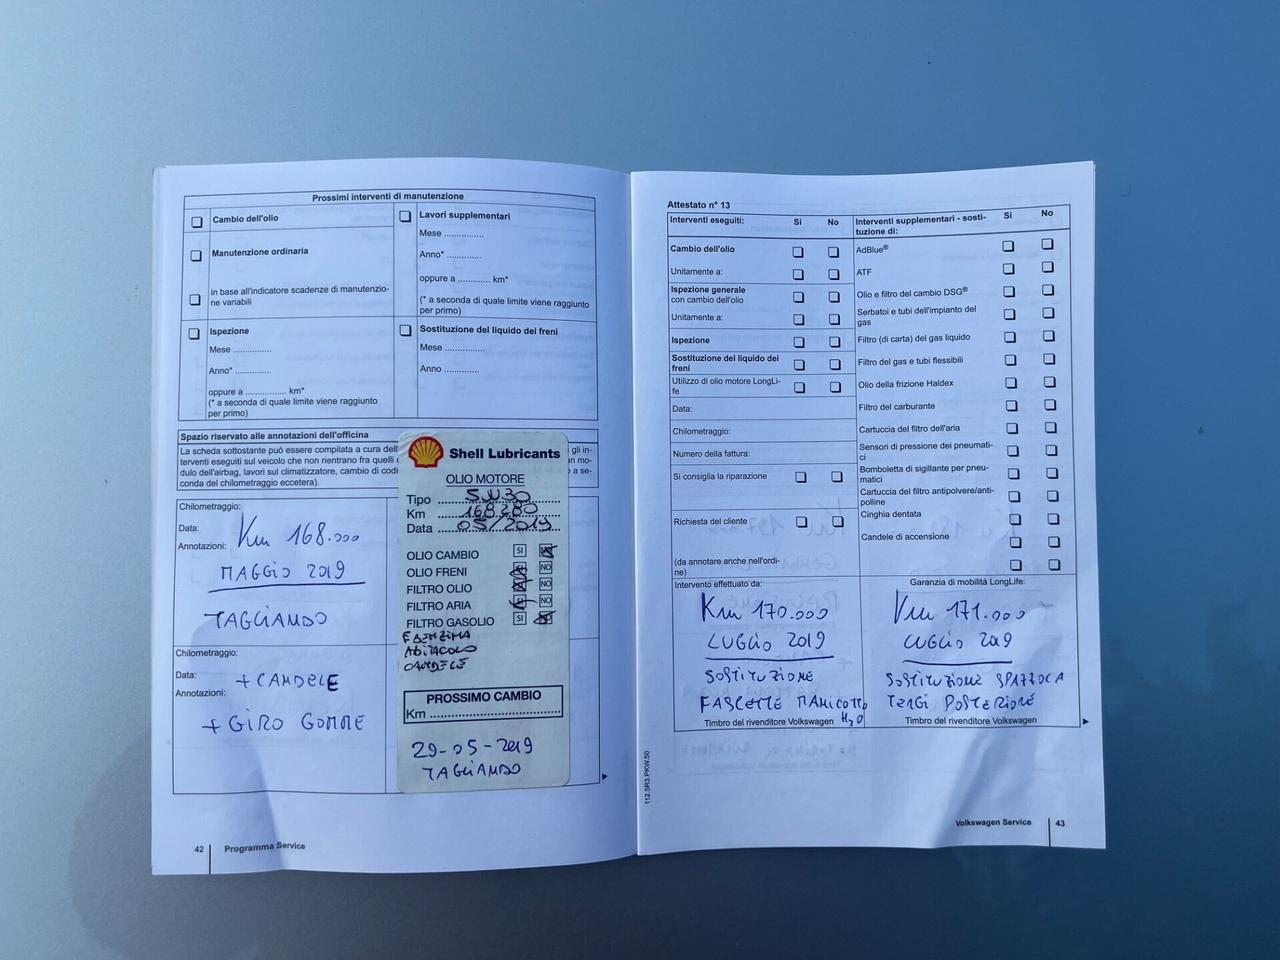 Prossimi interventi di manutenzione
Cambio dell'olio
Manutenzione ordinaria
in base all'indicatore scadenze di manutenzio-
ne variabili
Ispezione
Mese ..............
Anno* .............
oppure a ............... km*
(* a seconda di quale limite viene raggiunto
per primo)
Lavori supplementari
Mese ..............
Anno* ............
oppure a ............ km*
(* a seconda di quale limite viene raggiunto
per primo)
Sostituzione del liquido dei freni
Mese ..............
Anno ............
Spazio riservato alle annotazioni dell'officina
La scheda sottostante può essere compilata a cura dell'
terventi eseguiti sul veicolo che non rientrano fra quelli
dulo dell'airbag, lavori sul climatizzatore, cambio di codi
conda del chilometraggio eccetera).
Chilometraggio:
Data:
Annotazioni:
Km 168.000
MAGGIO 2019
TAGLIANDO
Chilometraggio:
Data:
Annotazioni:
+ CANDELE
+ GIRO GOMME
Shell Lubricants
OLIO MOTORE
Tipo 5W30
Km 168280
Data 05/2019
OLIO CAMBIO SI
OLIO FRENI NO
FILTRO OLIO NO
FILTRO ARIA NO
FILTRO GASOLIO SI
BENZINA
ABITACOLO
CANDELE
PROSSIMO CAMBIO
Km ..............................
29-05-2019
TAGLIANDO
42 Programma Service
Attestato n° 13
Interventi eseguiti: Sì No
Cambio dell'olio
Unitamente a:
Ispezione generale
con cambio dell'olio
Unitamente a:
Ispezione
Sostituzione del liquido dei
freni
Utilizzo di olio motore LongLi-
fe
Data:
Chilometraggio:
Numero della fattura:
Si consiglia la riparazione
Richiesta del cliente
(da annotare anche nell'ordi-
ne)
Interventi supplementari - sosti-
tuzione di: Sì No
AdBlue®
ATF
Olio e filtro del cambio DSG®
Serbatoi e tubi dell'impianto del
gas
Filtro (di carta) del gas liquido
Filtro del gas e tubi flessibili
Olio della frizione Haldex
Filtro del carburante
Cartuccia del filtro dell'aria
Sensori di pressione dei pneumati-
ci
Bomboletta di sigillante per pneu-
matici
Cartuccia del filtro antipolvere/anti-
polline
Cinghia dentata
Candele di accensione
Intervento effettuato da:
Km 170.000
LUGLIO 2019
SOSTITUZIONE
FASCETTE MANICOTTO
H2O
Timbro del rivenditore Volkswagen
Garanzia di mobilità LongLife:
Km 171.000
LUGLIO 2019
SOSTITUZIONE SPAZZOLA
TERGI POSTERIORE
Timbro del rivenditore Volkswagen
112.5R3.PKW.50
Volkswagen Service 43